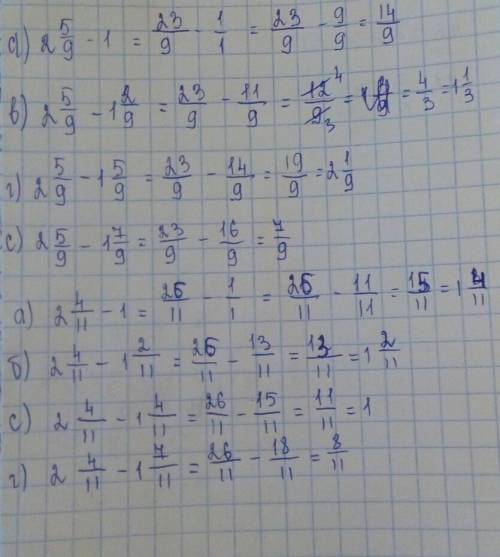 а) 2 5/9 - 1 = 23/9 - 1/1 = 23/9 - 9/9 = 14/9
в) 2 5/9 - 1 2/9 = 23/9 - 11/9 = 12/9 = = 4/3 = 1 1/3
г) 2 5/9 - 1 5/9 = 23/9 - 14/9 = 19/9 = 2 1/9
с) 2 5/9 - 1 7/9 = 23/9 - 16/9 = 7/9
а) 2 4/11 - 1 = 26/11 - 1/1 = 26/11 - 11/11 = 15/11 = 1 4/11
б) 2 4/11 - 1 2/11 = 26/11 - 13/11 = 13/11 = 1 2/11
с) 2 4/11 - 1 4/11 = 26/11 - 15/11 = 11/11 = 1
г) 2 4/11 - 1 7/11 = 26/11 - 18/11 = 8/11